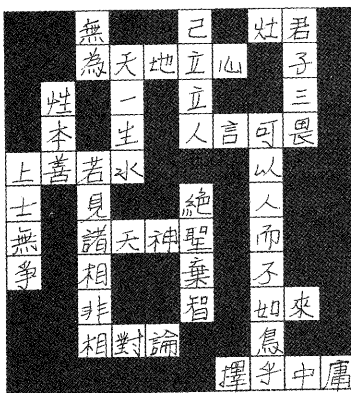 無 己 灶君
為天地立心 子
性 一 立 三
本 生 人言可畏
上善若水 以
士 見 絕 人
無 諸天神聖 而
爭 相 棄 不
非 智 如來
相對論 鳥
擇乎中庸